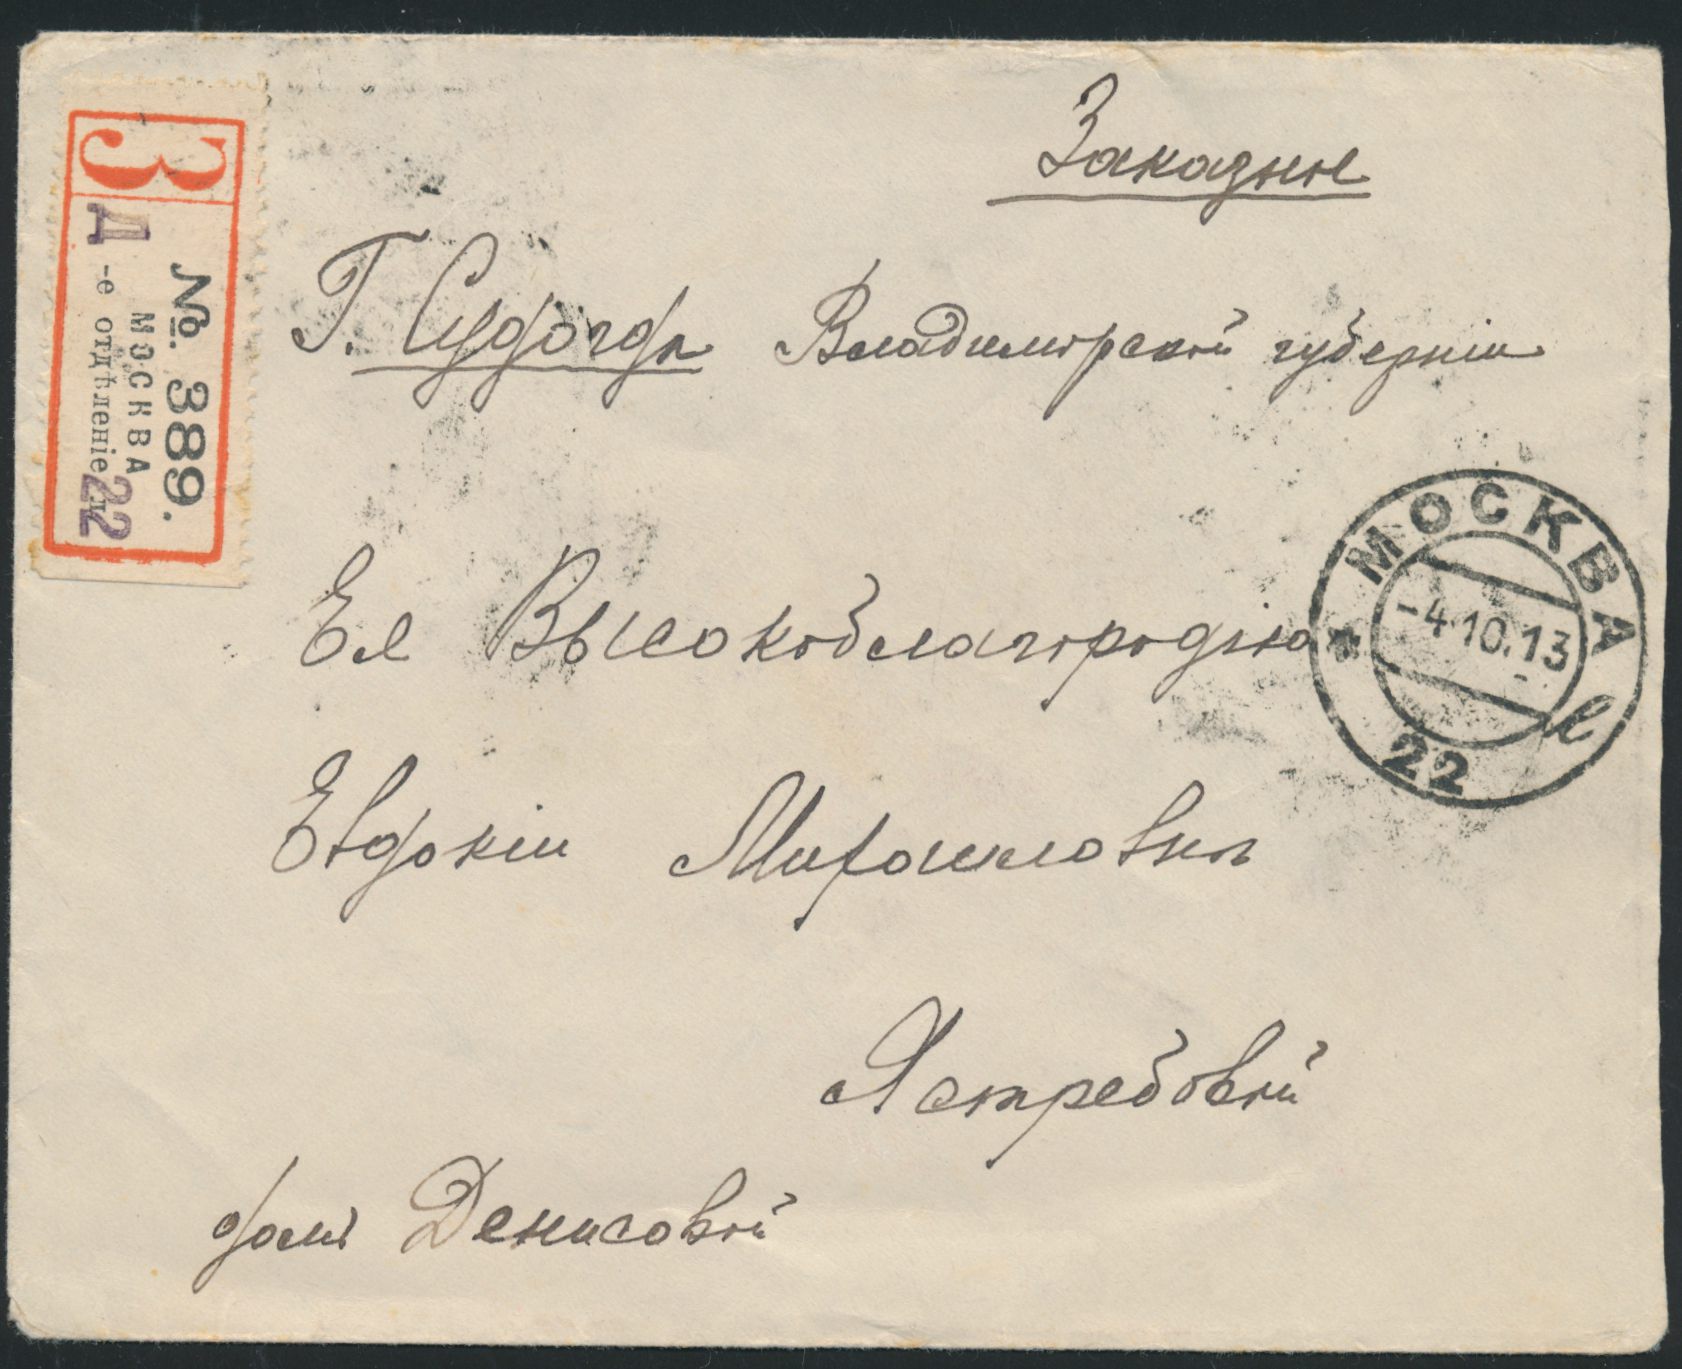 Заказное
Г. Судогда Владимирской губерніи
Ея Высокоблагородію
Евдокіи Михайловнѣ
Ястребовой
домъ Денисовой
З
Д
№. 389.
МОСКВА
-е отдѣленіе
22
МОСКВА
-4.10.13
22